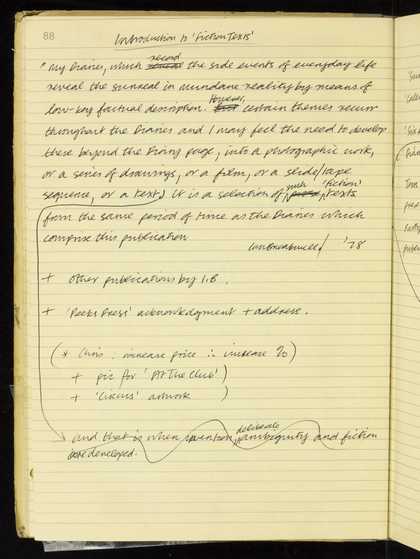 88
Introduction to 'Fiction Texts'
" My Diaries, which record the side events of everyday life
reveal the surreal in mundane reality by means of
low-key factual description. However, certain themes recur
throughout the Diaries and I may feel the need to develop
these beyond the Diary page, into a photographic work,
or a series of drawings, or a film, or a slide/tape
sequence, or a text. It is a selection of such 'fiction' texts
from the same period of time as the Diaries which
comprise this publication
Ian Breakwell / '78
+ Other publications by I.B.
+ 'Pecks Press' acknowledgment + address.
( * Chris : increase price ∴ increase % )
+ pic for 'At The Club' )
+ 'Circus' artwork )
and that is when invention, deliberate ambiguity and fiction
are developed.